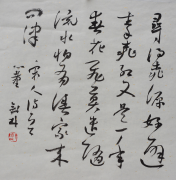 尋得桃源好避
秦桃紅又是一年
春花飛莫遣隨
流水怕有漁郎來
問津
宋人詩